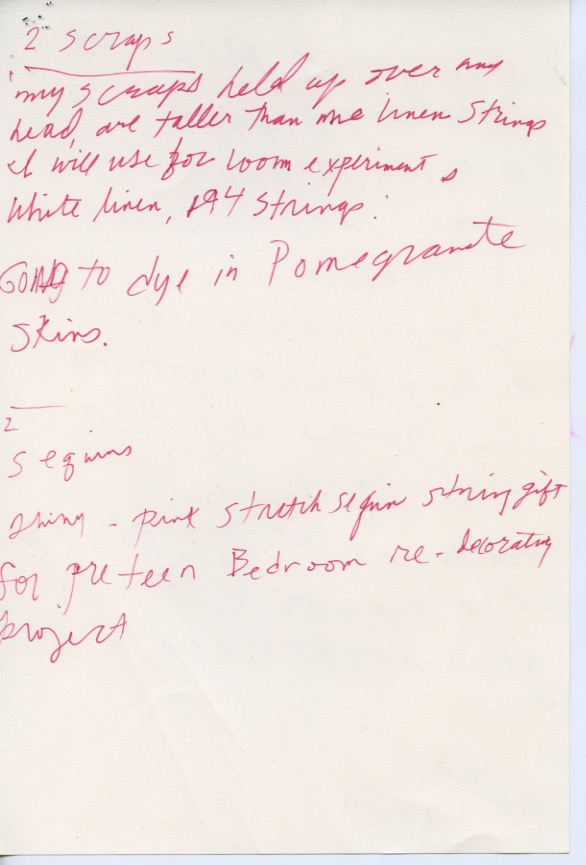 2 scraps
my scraps held up over my
head, are taller than me linen strings
I will use for loom experiment,
White linen, 194 strings.
GOING to dye in Pomegranate
Skins.
2
Sequins
shiny - pink stretch sequin string gift
for preteen Bedroom re-decorating
project